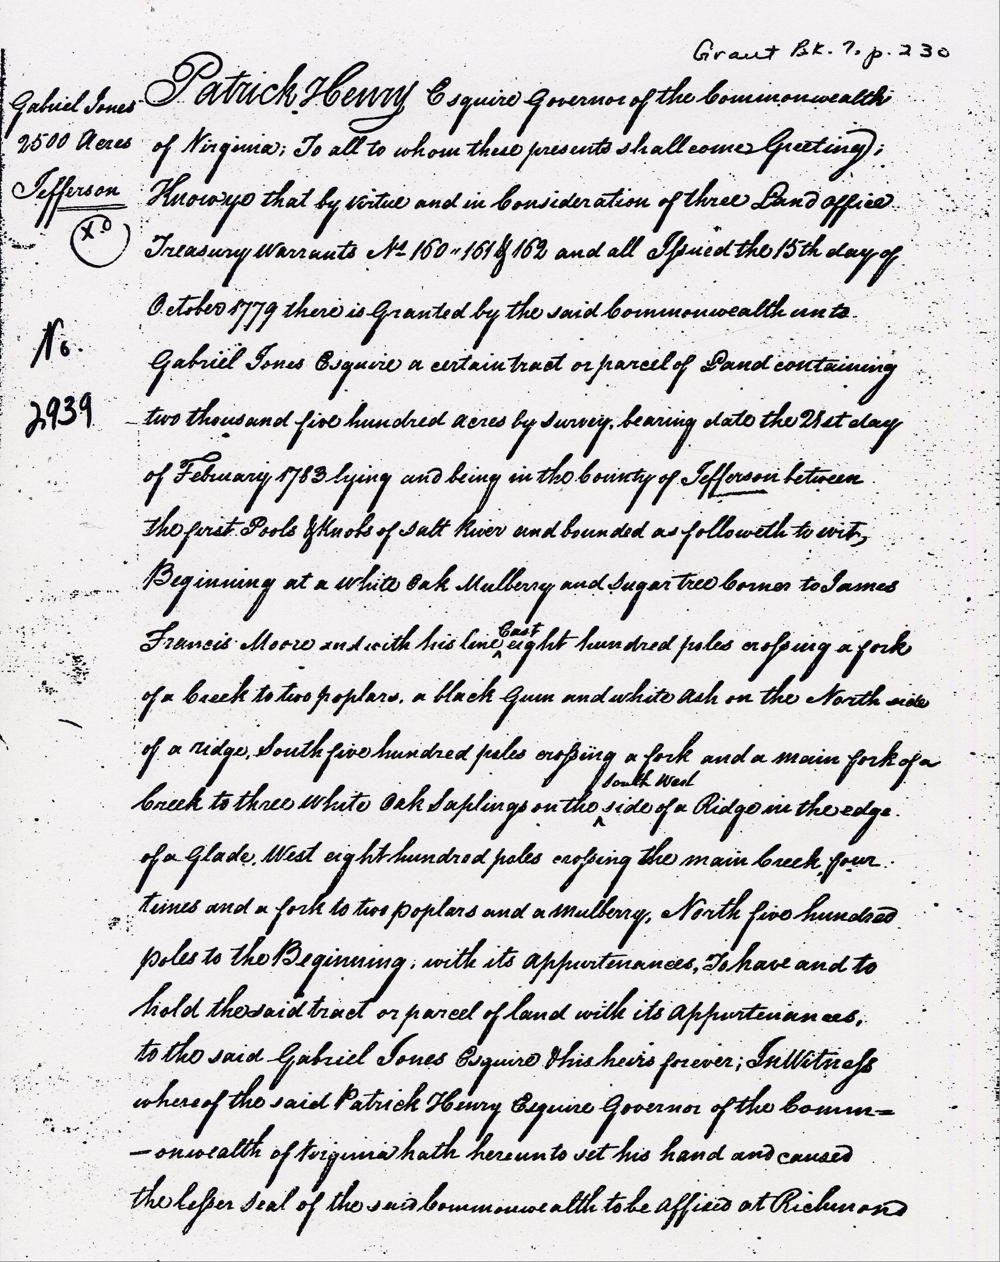 Grant Bk. 7. p. 230
Gabriel Jones
2500 Acres
Jefferson
XD
No.
2939
Patrick Henry Esquire Governor of the Commonwealth
of Virginia; To all to whom these presents shall come Greeting;
Know ye that by virtue and in Consideration of three Land office
Treasury Warrants No 160 " 161 & 162 and all Issued the 15th day of
October 1779 there is Granted by the said Commonwealth unto
Gabriel Jones Esquire a certain tract or parcel of Land containing
two thousand five hundred acres by survey, bearing date the 21st day
of February 1783 lying and being in the County of Jefferson between
the first Pools & Knobs of Salt River and bounded as followeth to wit,
Beginning at a White Oak Mulberry and Sugar tree Corner to James
Francis Moore and with his line East eight hundred poles crossing a fork
of a Creek to two poplars, a black Gum and white Ash on the North side
of a ridge, South five hundred poles crossing a fork and a main fork of a
Creek to three White Oak Saplings on the South West side of a Ridge in the edge
of a Glade, West eight hundred poles crossing the main Creek, four
times and a fork to two poplars and a mulberry, North five hundred
poles to the Beginning, with its Appurtenances, To have and to
hold the said tract or parcel of land with its Appurtenances,
to the said Gabriel Jones Esquire & his heirs forever; In Witness
whereof the said Patrick Henry Esquire Governor of the Comm=
-onwealth of Virginia hath hereunto set his hand and caused
the lesser Seal of the said Commonwealth to be affixed at Richmond